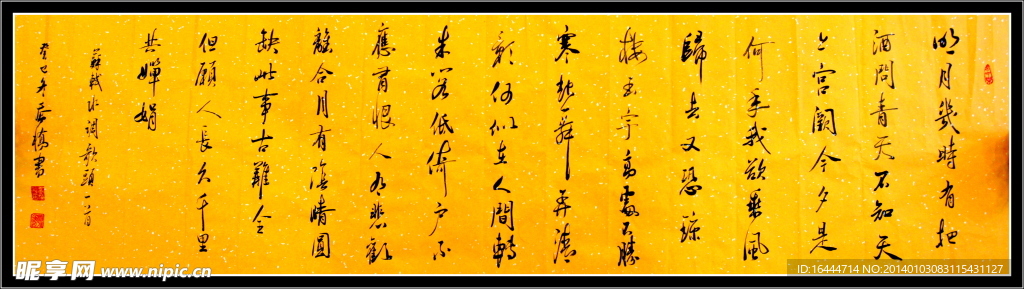 明月幾時有把
酒問青天不知天
上宮闕今夕是
何年我欲乗風
歸去又恐瓊
樓玉宇高處不勝
寒起舞弄清
影何似在人間轉
朱閣低倚户不
應有恨人有悲歡
離合月有陰晴圓
缺此事古難全
但願人長久千里
共嬋娟
蘇軾水調歌頭
癸巳年 書
昵享网 www.nipic.cn
ID:16444714 NO:20140103083115431127